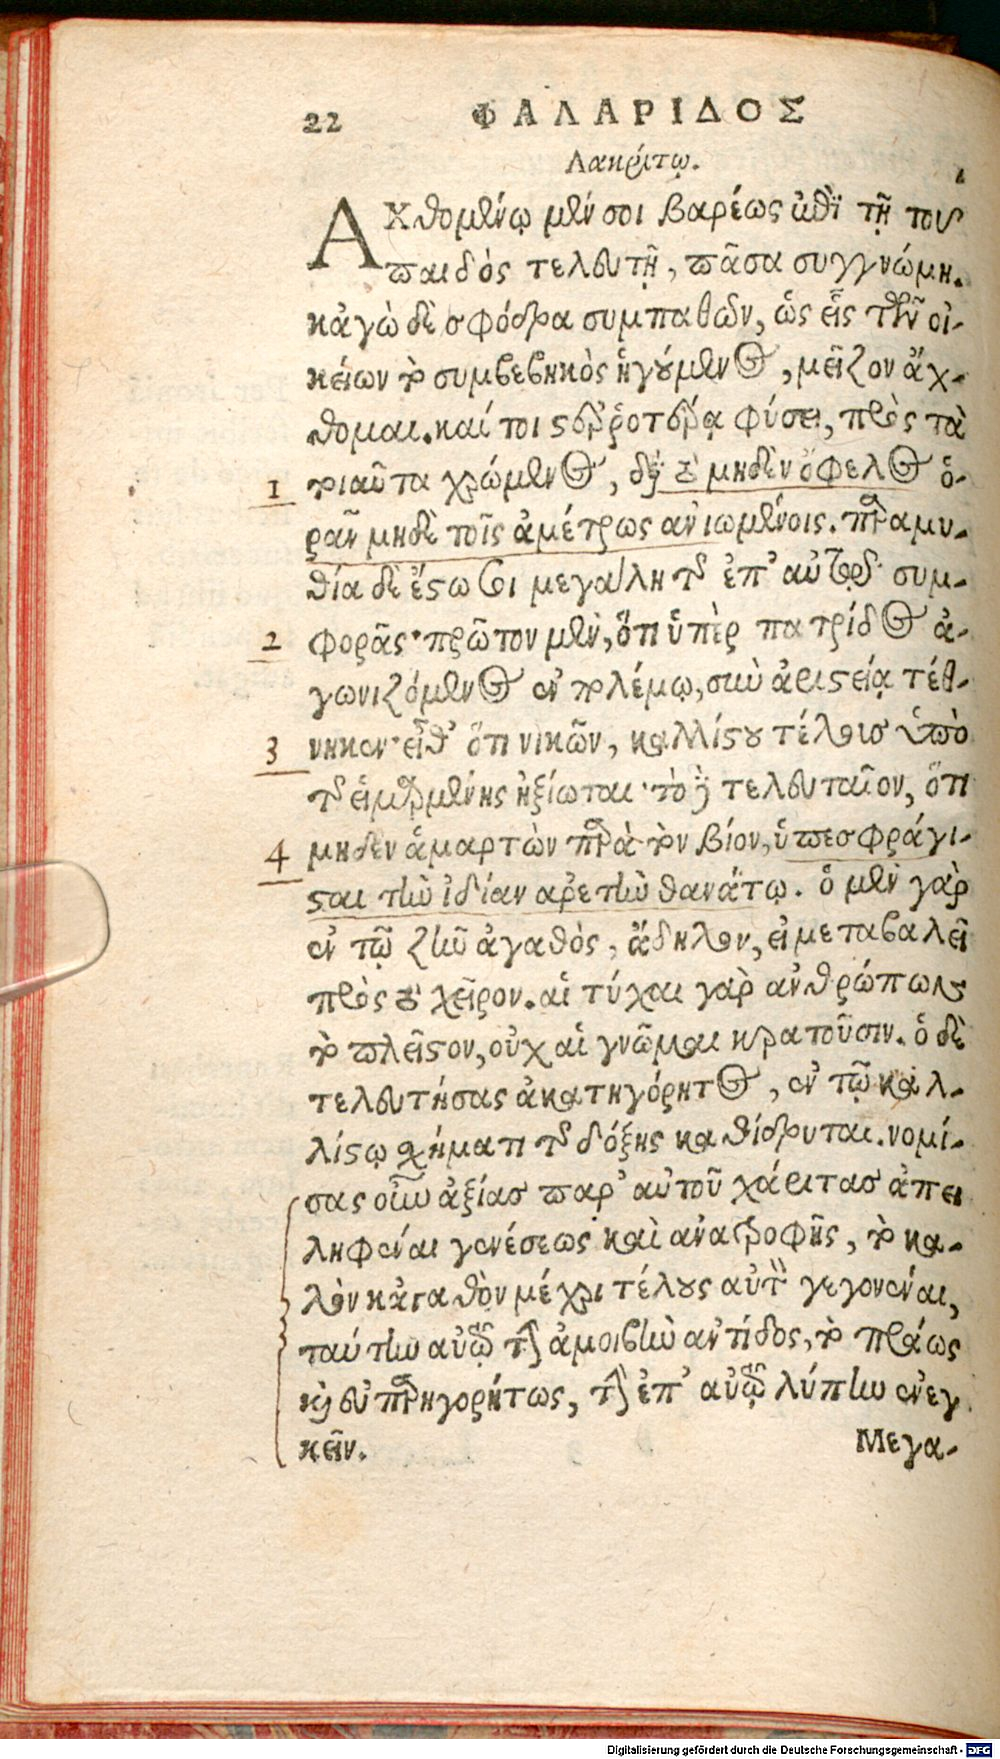 22 ΦΑΛΑΡΙΔΟΣ
Λακρίτῳ.
ΑΧθομένῳ μέν σοι βαρέως ἐπὶ τῇ τοῦ
παιδὸς τελευτῇ, πᾶσα συγγνώμη.
κἀγὼ δὲ σφόδρα συμπαθῶν, ὡς εἷς τῶν οἰ-
κείων τὸ συμβεβηκὸς ἡγούμενος, μεῖζον ἄχ-
θομαι. καί τοι στερροτέρᾳ φύσει, πρὸς τὰ
1 τοιαῦτα χρώμενος, διὰ τὸ μηδὲν ὄφελος ὁ-
ρᾶν μηδὲ τοῖς ἀμέτρως ἀνιωμένοις. παραμυ-
θία δὲ ἔστω σοι μεγάλη τῆς ἐπ' αὐτῷ συμ-
2 φορᾶς· πρῶτον μὲν, ὅτι ὑπὲρ πατρίδος ἀ-
γωνιζόμενος ἐν πολέμῳ, σὺν ἀριστείᾳ τέθ-
3 νηκεν· εἶθ' ὅτι νικῶν, καλλίστου τέλους ὑπὸ
τῆς εἱμαρμένης ἠξίωται· τὸ δὲ τελευταῖον, ὅτι
4 μηδὲν ἁμαρτὼν παρὰ τὸν βίον, ὑπεσφράγι-
σται τὴν ἰδίαν ἀρετὴν θανάτῳ. ὁ μὲν γὰρ
ἐν τῷ ζῆν ἀγαθὸς, ἄδηλον, εἰ μεταβαλεῖ
πρὸς τὸ χεῖρον. αἱ τύχαι γὰρ ἀνθρώπων
τὸ πλεῖστον, οὐχ αἱ γνῶμαι κρατοῦσιν. ὁ δὲ
τελευτήσας ἀκατηγόρητος, ἐν τῷ καλ-
λίστῳ σχήματι τῆς δόξης καθίδρυται. νομί-
σας οὖν ἀξίας παρ' αὐτοῦ χάριτας ἀπει
ληφέναι γενέσεως καὶ ἀναστροφῆς, τὸ κα-
λὸν κἀγαθὸν μέχρι τέλους αὐτὸν γεγονέναι,
ταύτην αὐτῷ τὴν ἀμοιβὴν ἀντίδος, τὸ πράως
καὶ εὐπαρηγορήτως, τὴν ἐπ' αὐτῷ λύπην ἐνεγ
κεῖν. Μεγα-
Digitalisierung gefördert durch die Deutsche Forschungsgemeinschaft - DFG